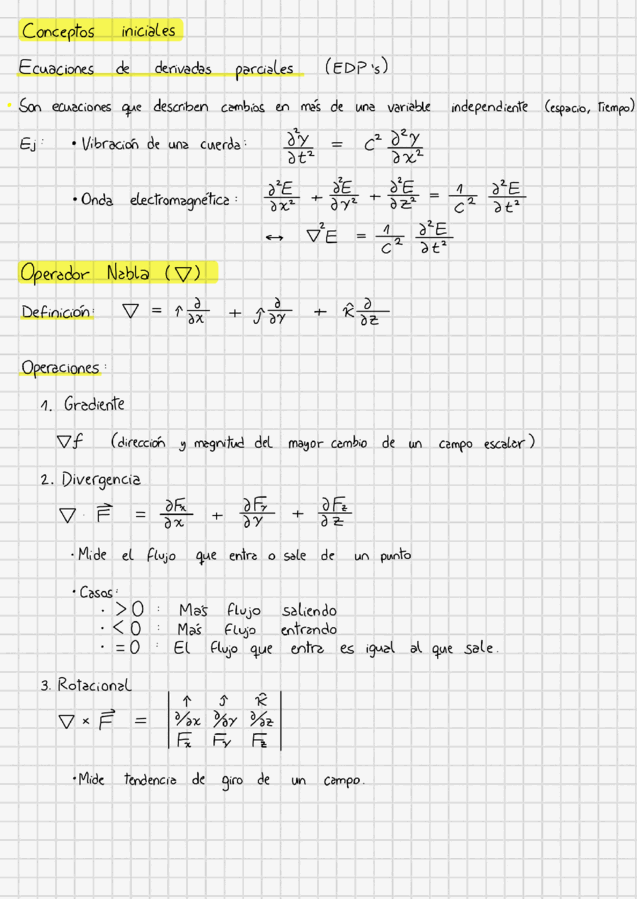 Conceptos iniciales
Ecuaciones de derivadas parciales (EDP's)
• Son ecuaciones que describen cambios en más de una variable independiente (espacio, tiempo)
Ej: • Vibración de una cuerda: ∂²y/∂t² = c² ∂²y/∂x²
• Onda electromagnética: ∂²E/∂x² + ∂²E/∂y² + ∂²E/∂z² = 1/c² ∂²E/∂t²
↔ ∇²E = 1/c² ∂²E/∂t²
Operador Nabla (∇)
Definición: ∇ = î ∂/∂x + ĵ ∂/∂y + k̂ ∂/∂z
Operaciones:
1. Gradiente
∇f (dirección y magnitud del mayor cambio de un campo escalar)
2. Divergencia
∇ · F⃗ = ∂Fx/∂x + ∂Fy/∂y + ∂Fz/∂z
• Mide el flujo que entra o sale de un punto
• Casos:
• >0 : Más flujo saliendo
• <0 : Más flujo entrando
• =0 : El flujo que entra es igual al que sale.
3. Rotacional
∇ × F⃗ = | î ĵ k̂ |
| ∂/∂x ∂/∂y ∂/∂z |
| Fx Fy Fz |
• Mide tendencia de giro de un campo.